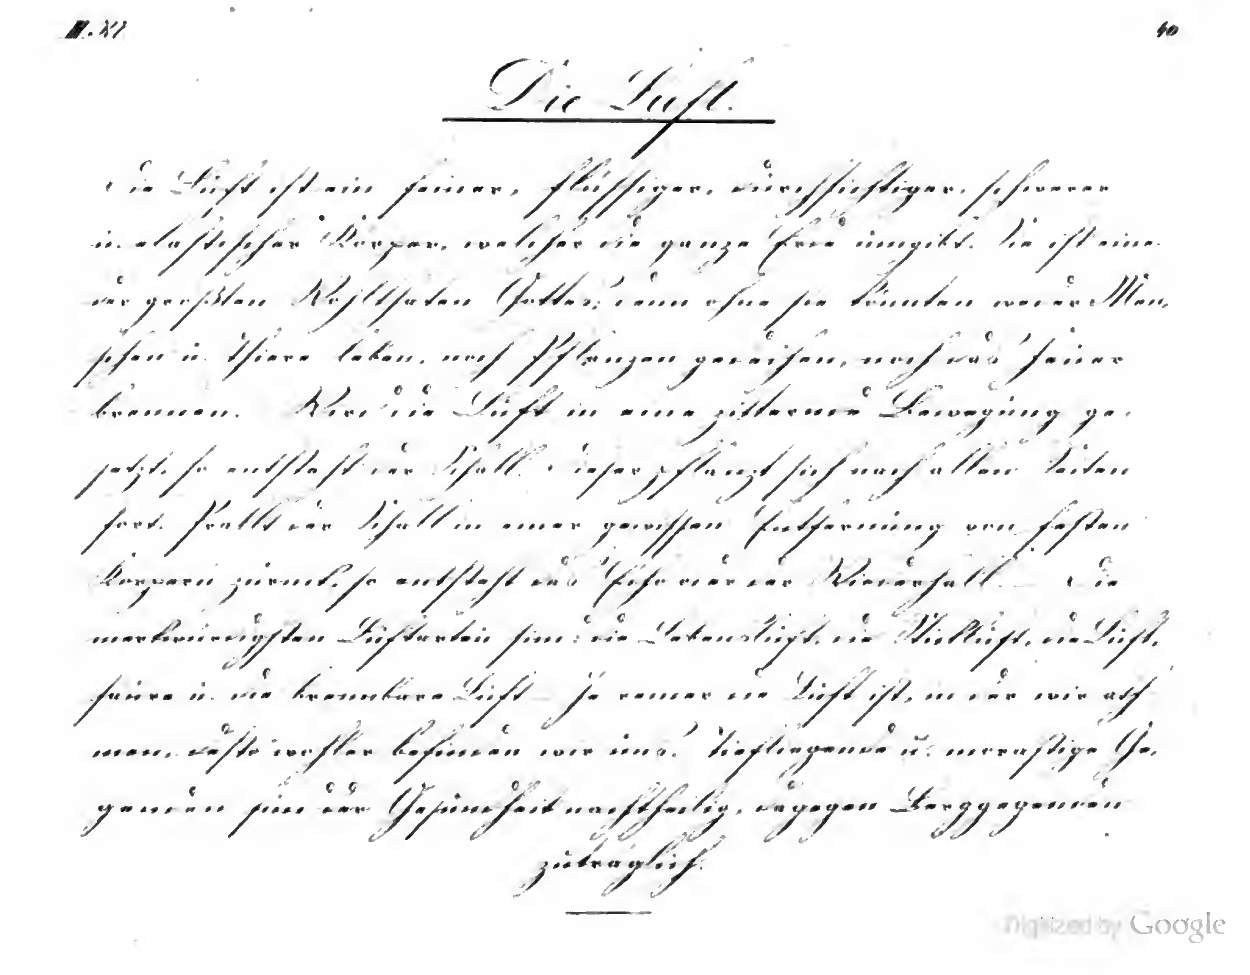 II. XI
40
Die Luft.
Die Luft ist ein feiner, flüssiger, durchsichtiger, schwerer
u. elastischer Körper, welcher die ganze Erde umgibt. Sie ist eine
der größten Wohlthaten Gottes; denn ohne sie könnten weder Men-
schen u. Thiere leben, noch Pflanzen gedeihen, noch das Feuer
brennen. Wird die Luft in eine zitternde Bewegung ge-
setzt, so entsteht der Schall. Dieser pflanzt sich nach allen Seiten
fort. Prallt der Schall in einer gewissen Entfernung von festen
Körpern zurück, so entsteht das Echo oder der Wiederhall. — Die
merkwürdigsten Luftarten sind: die Lebensluft, die Stickluft, die Luft-
säure u. die brennbare Luft. — Je reiner die Luft ist, in der wir ath-
men, desto wohler befinden wir uns. Tiefliegende u. morastige Ge-
genden sind der Gesundheit nachtheilig, dagegen Berggegenden
zuträglich.
Digitized by Google